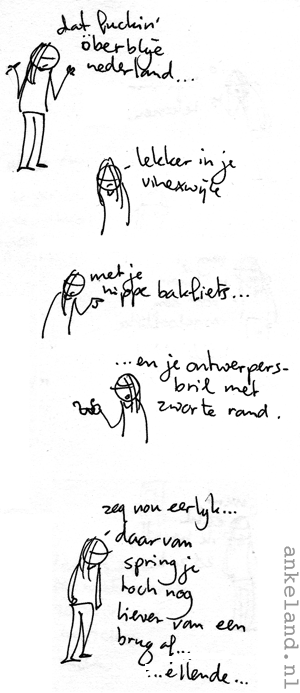 dat fuckin'
überblije
nederland...
lekker in je
vinexwijk
met je
hippe bakfiets...
...en je ontwerpers-
bril met
zwarte rand.
zeg nou eerlijk...
daar van
spring je
toch nog
liever van een
brug af...
...ellende...
ankeland.nl